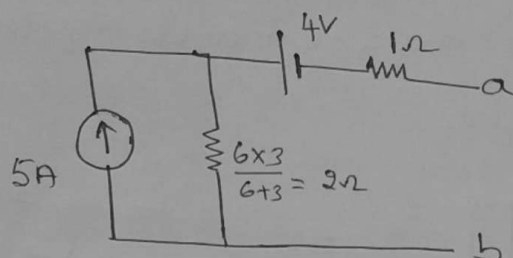 4V
1Ω
a
5A
6×3
6+3 = 2Ω
b